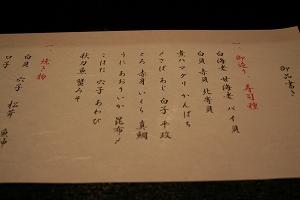 御品書き
一、御造り、寿司種
白海老 甘海老 バイ貝
白貝 赤貝 北寄貝
煮ハマグリ かんぱち
〆さば あじ 白子 平政
とろ 赤身 いくら 真鯛
うに あおりいか 昆布〆
こはだ 穴子 あわび
秋刀魚 蟹みそ
一、焼き物
白貝 穴子 松茸